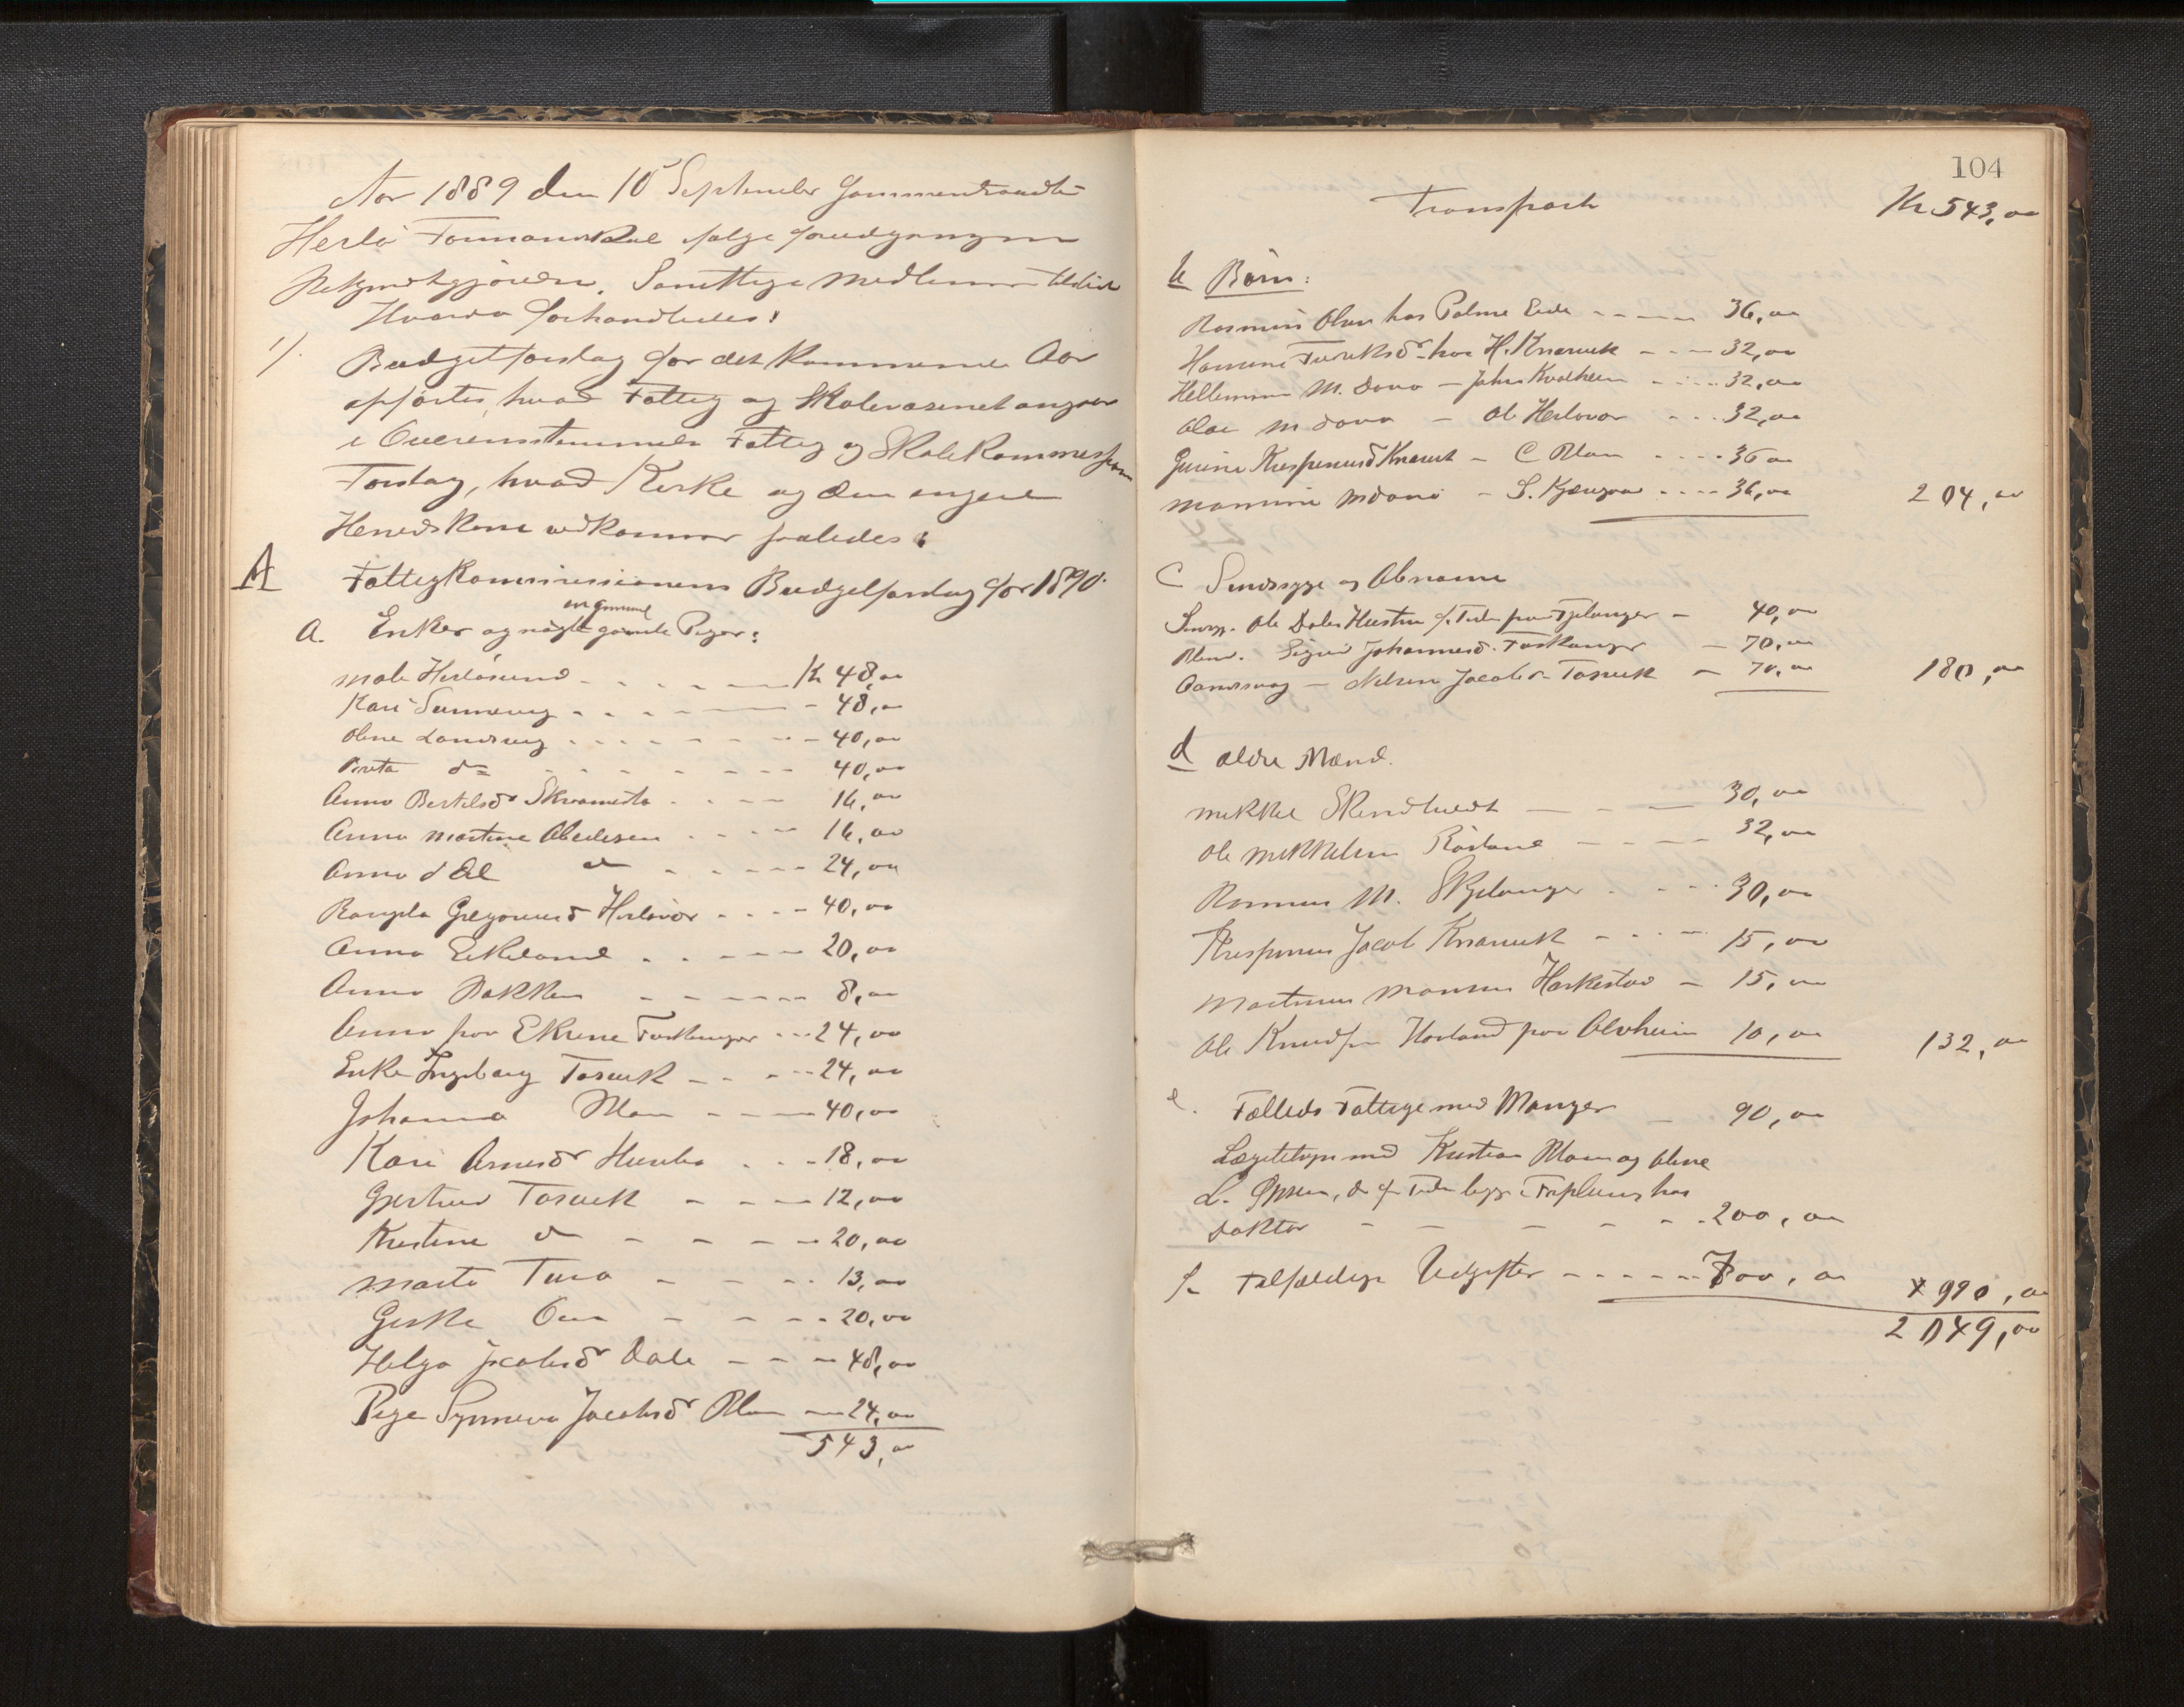 Aar 1889 den 10 September sammentraadte
Herlø Formandskab ifølge forudgangen
Bekjendtgjørelse. Samtlige Medlemmer tilstede
Hvorda forhandledes:
1/. Budgetforslag for det kommende Aar
opførtes, hvad Fattig og Skolevæsenet angaar
i Overensstemmelse Fattig og Skolekommissionens
Forslag, hvad Kirke og den
Heredskasse vedkommer saaledes:
A Fattigkommissionens Budgetforslag for 1890.
a. Enker og nogle gamle Piger:
Male Herløsund - - - - Kr 48,00
Kari Sunnevag - - - - 48,00
Oline Landsvig - - - - 40,00
Berta do - - - - 40,00
Anna Bertelsdr Skvamesto - - - - 16,00
Anna Martine Abelesen - - - - 16,00
Anna d Ed do - - - - 24,00
Rangela Gregoriusd Herløvær - - - - 40,00
Anna Eikeland - - - - 20,00
Anna Bakken - - - - 8,00
Anna paa Ekrene Foslanger - - - 24,00
Enke Ingeborg Tosvik - - - - 24,00
Johanna Blom - - - - 40,00
Kari Arnesdr Husebø - - - 18,00
Gjertrud Tosvik - - - - 12,00
Kristine do - - - - 20,00
Marta Turø - - - - 13,00
Geske Oen - - - - 20,00
Helga Jacobsdr Dale - - - 48,00
Pige Synneva Jacobsdr Blom - 24,00
543,00
104
Transport Kr 543,00
b Børn:
Rasmus Olsen hos Palme Eide - - - - 36,00
Hansine hos H. Knarvik - - - 32,00
M. Dova - Johs Kvalheim - - - 32,00
Olai M Dova - Ole Herløvær - - - 32,00
Gurine Krispinusd Knarvik - C Blom - - - - 36 00
Mansine M Dova - S. - - - - 36,00 204,00
C Sindssyge og
Sindssyg. Ole Dales Hustru f. Tiden paa Fjelanger - 40,00
Blind. Sigrid Johannesd. Foslanger - 70,00
Aandssvag - Nelsine Jacobsdr Tosvik - 70,00 180,00
d ældre Mænd.
Mikkel - - - 30,00
Ole Mikkelsen Røsland - - - - 32,00
Rasmus M. Skjelanger - - - 30,00
Krispinus Jacob Knarvik - - - - 15,00
Martinus Monsen Haakestad - 15,00
Ole Knudsen Horland paa Alvheim 10,00 132,00
e. Fælleds Fattige med Manger - 90,00
Lægetilsyn med Kristian Blom og Oline
L. , d. f. Tiden ligge i Forpleining hos
Doktor - - - - - 200,00
f. Tilfældige Udgifter - - - - - 700,00 990,00
2049,00